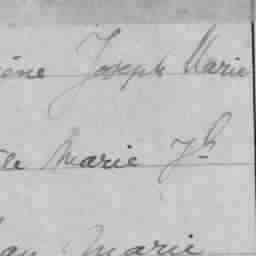 ène Joseph Marie
le Marie Jh
an Marie